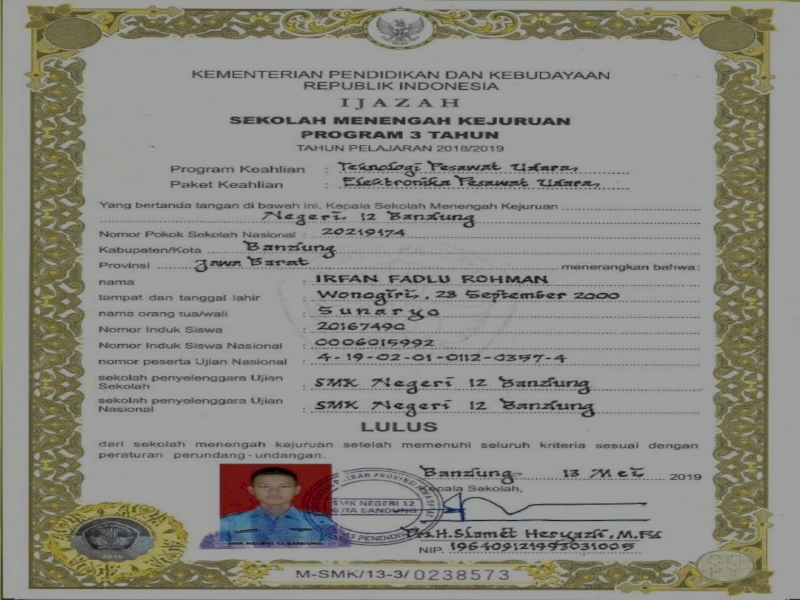 KEMENTERIAN PENDIDIKAN DAN KEBUDAYAAN
REPUBLIK INDONESIA
IJAZAH
SEKOLAH MENENGAH KEJURUAN
PROGRAM 3 TAHUN
TAHUN PELAJARAN 2018/2019
Program Keahlian : Teknologi Pesawat Udara
Paket Keahlian : Elektronika Pesawat Udara
Yang bertanda tangan di bawah ini, Kepala Sekolah Menengah Kejuruan
Negeri 12 Bandung
Nomor Pokok Sekolah Nasional : 20219174
Kabupaten/Kota Bandung
Provinsi Jawa Barat menerangkan bahwa:
nama : IRFAN FADLU ROHMAN
tempat dan tanggal lahir : Wonogiri, 28 September 2000
nama orang tua/wali : Sunaryo
Nomor Induk Siswa : 20167490
Nomor Induk Siswa Nasional : 0006015992
nomor peserta Ujian Nasional : 4-19-02-01-0112-0357-4
sekolah penyelenggara Ujian
Sekolah : SMK Negeri 12 Bandung
sekolah penyelenggara Ujian
Nasional : SMK Negeri 12 Bandung
LULUS
dari sekolah menengah kejuruan setelah memenuhi seluruh kriteria sesuai dengan
peraturan perundang-undangan.
Bandung 13 Mei 2019
Kepala Sekolah,
SMK NEGERI 12
KOTA BANDUNG
SMK NEGERI 12 BANDUNG
Drs.H.Slamet Heryadi, M.Pd
NIP. 196409121993031005
M-SMK/13-3/0238573